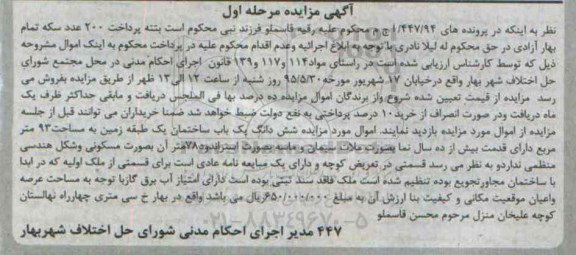 آگهی مزایده مرحله اول
نظر به اینکه در پرونده های ۱/۴۴۷/۹۴ ج م محکوم علیه رقیه قاسملو فرزند نبی محکوم است بتنه پرداخت ۲۰۰ عدد سکه تمام
بهار آزادی در حق محکوم له لیلا نادری با توجه به ابلاغ اجرائیه وعدم اقدام محکوم علیه در پرداخت محکوم به اینک اموال مشروحه
ذیل که توسط کارشناس ارزیابی شده است در راستای مواد۱۱۴ و۱۱۷ و۱۳۹ قانون اجرای احکام مدنی در محل مجتمع شورای
حل اختلاف شهر بهار واقع درخیابان ۱۷ شهریور مورخه ۹۵/۵/۳۰ روز شنبه از ساعت ۱۲ الی۱۳ ظهر از طریق مزایده بفروش می
رسد مزایده از قیمت تعیین شده شروع واز برندگان اموال مزایده ده درصد بها فی المجلس دریافت و مابقی حداکثر ظرف یک
ماه دریافت ودر صورت انصراف از خرید۱۰ درصد پرداختی به نفع دولت ضبط خواهد شد ضمنا خریداران می توانند قبل از جلسه
مزایده از اموال مورد مزایده بازدید نمایند. اموال مورد مزایده شش دانگ یک باب ساختمان یک طبقه زمین به مساحت۹۳ متر
مربع دارای قدمت بیش از ده سال نما بصورت ملات سیمان و ماسه بصورت متراژبود۷۸متر آن بصورت مسکونی وشکل هندسی
منظمی نداردو به نظر می رسد قسمتی در تعریض کوچه و دارای یک مبایعه نامه عادی است برای قسمتی از ملک اولیه که در ابدا
با ساختمان مجاورتجویع بوده تنظیم شده است ملک فاقد سند ثبتی بوده است دارای امتیاز آب برق گازبا توجه به مساحت عرصه
واعیان موقعیت مکانی و کیفیت بنا ارزش آن به مبلغ ۶۵۰/۰۰۰/۰۰۰ریال می باشد واقع در بهار خ سی متری چهارراه نهالستان
کوچه علیخان منزل مرحوم محسن قاسملو
۴۴۷ مدیر اجرای احکام مدنی شورای حل اختلاف شهربهار
۰۲۱-۸۸۳۴۹۶۷۰-۵